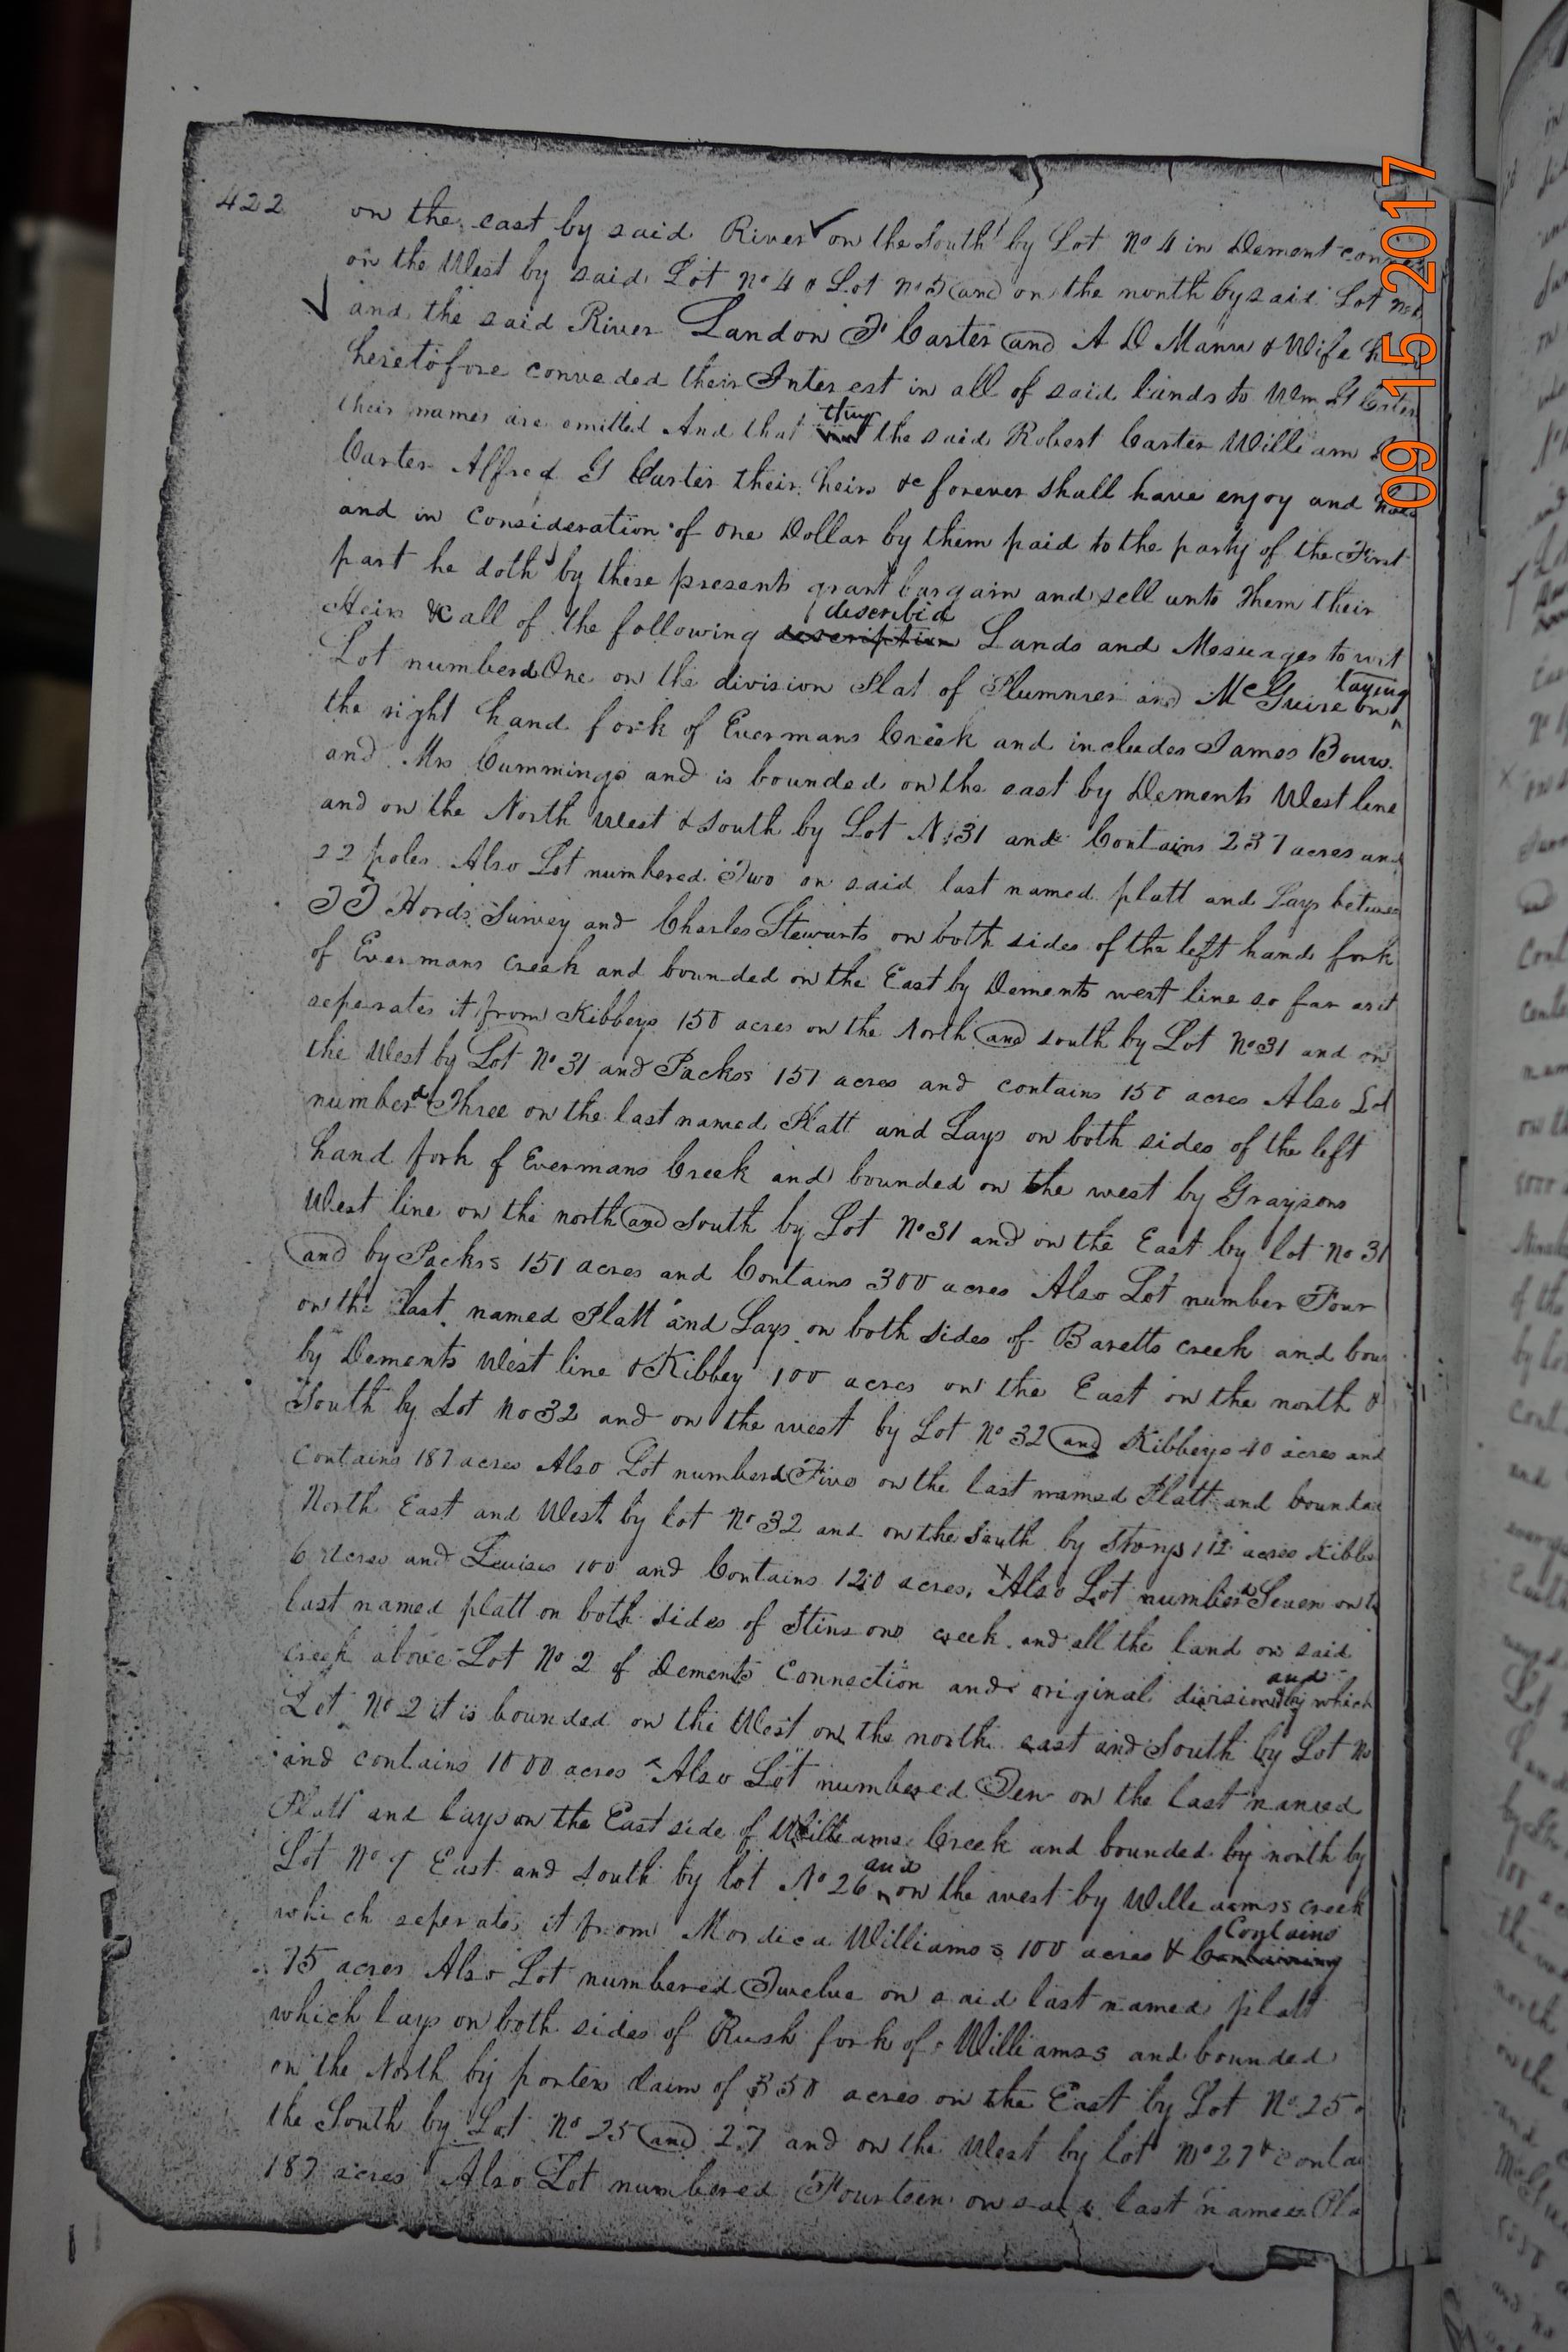 422
on the east by said River on the South by Lot No 4 in Dement
on the West by said Lot No 4 & Lot No 5 and on the north by said Lot
and the said River Landon T Carter and A D Mann & Wife
heretofore conveded their Interest in all of said lands to Wm G Carter
their names are omitted And that they the said Robert Carter William
Carter Alfred G Carter their heirs &c forever shall have enjoy and
and in consideration of one Dollar by them paid to the party of the First
part he doth by these presents grant bargain and sell unto them their
Heirs &c all of the following description described Lands and Messuages to wit
Lot numberd One on the division Plat of Plummer and McGuire laying on
the right hand fork of Evermans Creek and includes James
and Mrs Cummings and is bounded on the east by Dements West line
and on the North West & South by Lot N 31 and Contains 237 acres and
22 poles Also Lot numbered Two on said last named platt and Lays between
Hords Survey and Charles Stewarts on both sides of the left hand fork
of Evermans creek and bounded on the East by Dements west line so far as it
seperates it from Kibbeys 150 acres on the North and south by Lot No 31 and on
the West by Lot No 31 and Packs 151 acres and contains 150 acres Also Lot
numberd Three on the last named Platt and Lays on both sides of the left
hand fork of Evermans Creek and bounded on the west by Graysons
West line on the north and South by Lot No 31 and on the East by lot No 31
and by Packs 151 acres and Contains 300 acres Also Lot number Four
on the last named Platt and Lays on both Sides of Baretts creek and
by Dements West line & Kibbey 100 acres on the East on the north &
South by Lot No 32 and on the west by Lot No 32 and Kibbeys 40 acres and
contains 187 acres Also Lot numberd Five on the last named Platt and
North East and West by Lot No 32 and on the South by Storys 112 acres
acres and Lewises 100 and Contains 120 acres, Also Lot numberd Seven on
last named platt on both sides of Stinsons creek and all the land on said
creek above Lot No 2 of Dements Connection and original division and by which
Lot No 2 it is bounded on the West on the north east and South by Lot No
and contains 1000 acres Also Lot numbered Ten on the last named
Platt and lays on the East side of Williams Creek and bounded by north by
Lot No 9 East and south by lot No 26 and on the west by Williams creek
which seperates it from Mordica Williams 100 acres & Containing Contains
75 acres Also Lot numbered Twelve on said last named platt
which lays on both sides of Rush fork of Williamss and bounded
on the North by porters claim of 350 acres on the East by Lot No 25
the South by Lot No 25 and 27 and on the West by lot No 27 &
187 acres Also Lot numbered Fourteen on said last named
09 15 2017